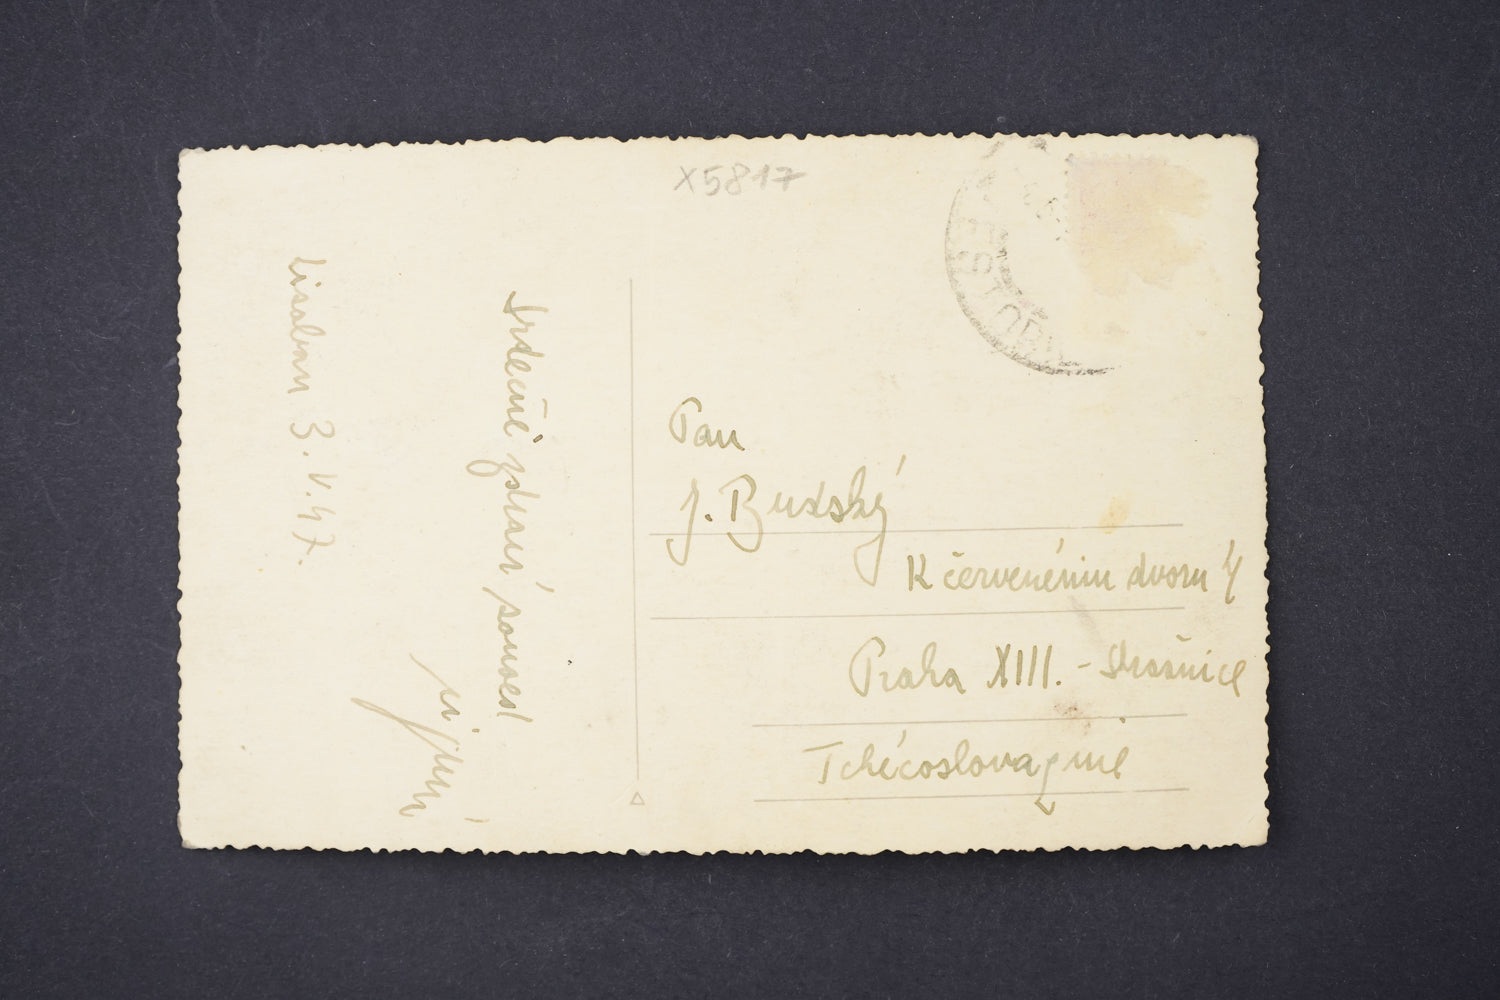 X5817
Lisabon 3.V.47.
Srdečně zdraví
Pan
J. Budský
K červenému dvoru 4
Praha XIII. - Strašnice
Tchécoslovaquie